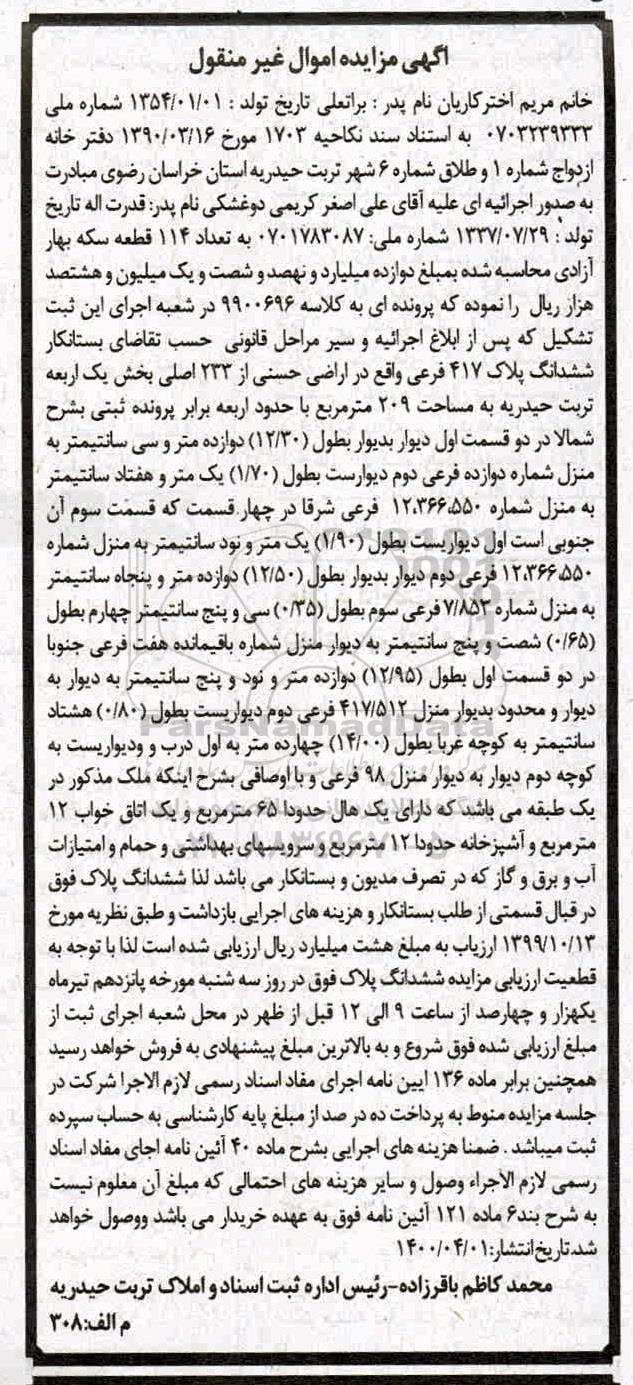 آگهی مزایده اموال غیر منقول
خانم مریم اخترکاریان نام پدر : براتعلی تاریخ تولد : ۱۳۵۴/۰۱/۰۱ شماره ملی
۰۷۰۳۲۳۹۳۳۳ به استناد سند نکاحیه ۱۷۰۳ مورخ ۱۳۹۰/۰۳/۱۶ دفتر خانه
ازدواج شماره ۱ و طلاق شماره ۶ شهر تربت حیدریه استان خراسان رضوی مبادرت
به صدور اجرائیه ای علیه آقای علی اصغر کریمی دوغشکی نام پدر: قدرت اله تاریخ
تولد : ۱۳۳۷/۰۷/۲۹ شماره ملی: ۰۷۰۱۷۸۳۰۸۷ به تعداد ۱۱۴ قطعه سکه بهار
آزادی محاسبه شده بمبلغ دوازده میلیارد و نهصد و شصت و یک میلیون و هشتصد
هزار ریال را نموده که پرونده ای به کلاسه ۹۹۰۰۶۹۶ در شعبه اجرای این ثبت
تشکیل که پس از ابلاغ اجرائیه و سیر مراحل قانونی حسب تقاضای بستانکار
ششدانگ پلاک ۴۱۷ فرعی واقع در اراضی حسنی از ۲۳۳ اصلی بخش یک اربعه
تربت حیدریه به مساحت ۲۰۹ مترمربع با حدود اربعه برابر پرونده ثبتی بشرح
شمالا در دو قسمت اول دیوار بدیوار بطول (۱۲/۳۰) دوازده متر و سی سانتیمتر به
منزل شماره دوازده فرعی دوم دیوارست بطول (۱/۷۰) یک متر و هفتاد سانتیمتر
به منزل شماره ۱۲،۳۶۶،۵۵۰ فرعی شرقا در چهار قسمت که قسمت سوم آن
جنوبی است اول دیواریست بطول (۱/۹۰) یک متر و نود سانتیمتر به منزل شماره
۱۲،۳۶۶،۵۵۰ فرعی دوم دیوار بدیوار بطول (۱۲/۵۰) دوازده متر و پنجاه سانتیمتر
به منزل شماره ۷/۸۵۳ فرعی سوم بطول (۰/۳۵) سی و پنج سانتیمتر چهارم بطول
(۰/۶۵) شصت و پنج سانتیمتر به دیوار منزل شماره باقیمانده هفت فرعی جنوبا
در دو قسمت اول بطول (۱۲/۹۵) دوازده متر و نود و پنج سانتیمتر به دیوار به
دیوار و محدود بدیوار منزل ۴۱۷/۵۱۲ فرعی دوم دیواریست بطول (۰/۸۰) هشتاد
سانتیمتر به کوچه غربا بطول (۱۴/۰۰) چهارده متر به اول درب و ودیواریست به
کوچه دوم دیوار به دیوار منزل ۹۸ فرعی و با اوصافی بشرح اینکه ملک مذکور در
یک طبقه می باشد که دارای یک هال حدودا ۶۵ مترمربع و یک اتاق خواب ۱۲
مترمربع و آشپزخانه حدودا ۱۲ مترمربع و سرویسهای بهداشتی و حمام و امتیازات
آب و برق و گاز که در تصرف مدیون و بستانکار می باشد لذا ششدانگ پلاک فوق
در قبال قسمتی از طلب بستانکار و هزینه های اجرایی بازداشت و طبق نظریه مورخ
۱۳۹۹/۱۰/۱۳ ارزیاب به مبلغ هشت میلیارد ریال ارزیابی شده است لذا با توجه به
قطعیت ارزیابی مزایده ششدانگ پلاک فوق در روز سه شنبه مورخه پانزدهم تیرماه
یکهزار و چهارصد از ساعت ۹ الی ۱۲ قبل از ظهر در محل شعبه اجرای ثبت از
مبلغ ارزیابی شده فوق شروع و به بالاترین مبلغ پیشنهادی به فروش خواهد رسید
همچنین برابر ماده ۱۳۶ ایین نامه اجرای مفاد اسناد رسمی لازم الاجرا شرکت در
جلسه مزایده منوط به پرداخت ده در صد از مبلغ پایه کارشناسی به حساب سپرده
ثبت میباشد . ضمنا هزینه های اجرایی بشرح ماده ۴۰ آئین نامه اجای مفاد اسناد
رسمی لازم الاجراء وصول و سایر هزینه های احتمالی که مبلغ آن معلوم نیست
به شرح بند۶ ماده ۱۲۱ آئین نامه فوق به عهده خریدار می باشد ووصول خواهد
شد.تاریخ انتشار:۱۴۰۰/۰۴/۰۱
محمد کاظم باقرزاده-رئیس اداره ثبت اسناد و املاک تربت حیدریه
م الف:۳۰۸
ParsNamadData